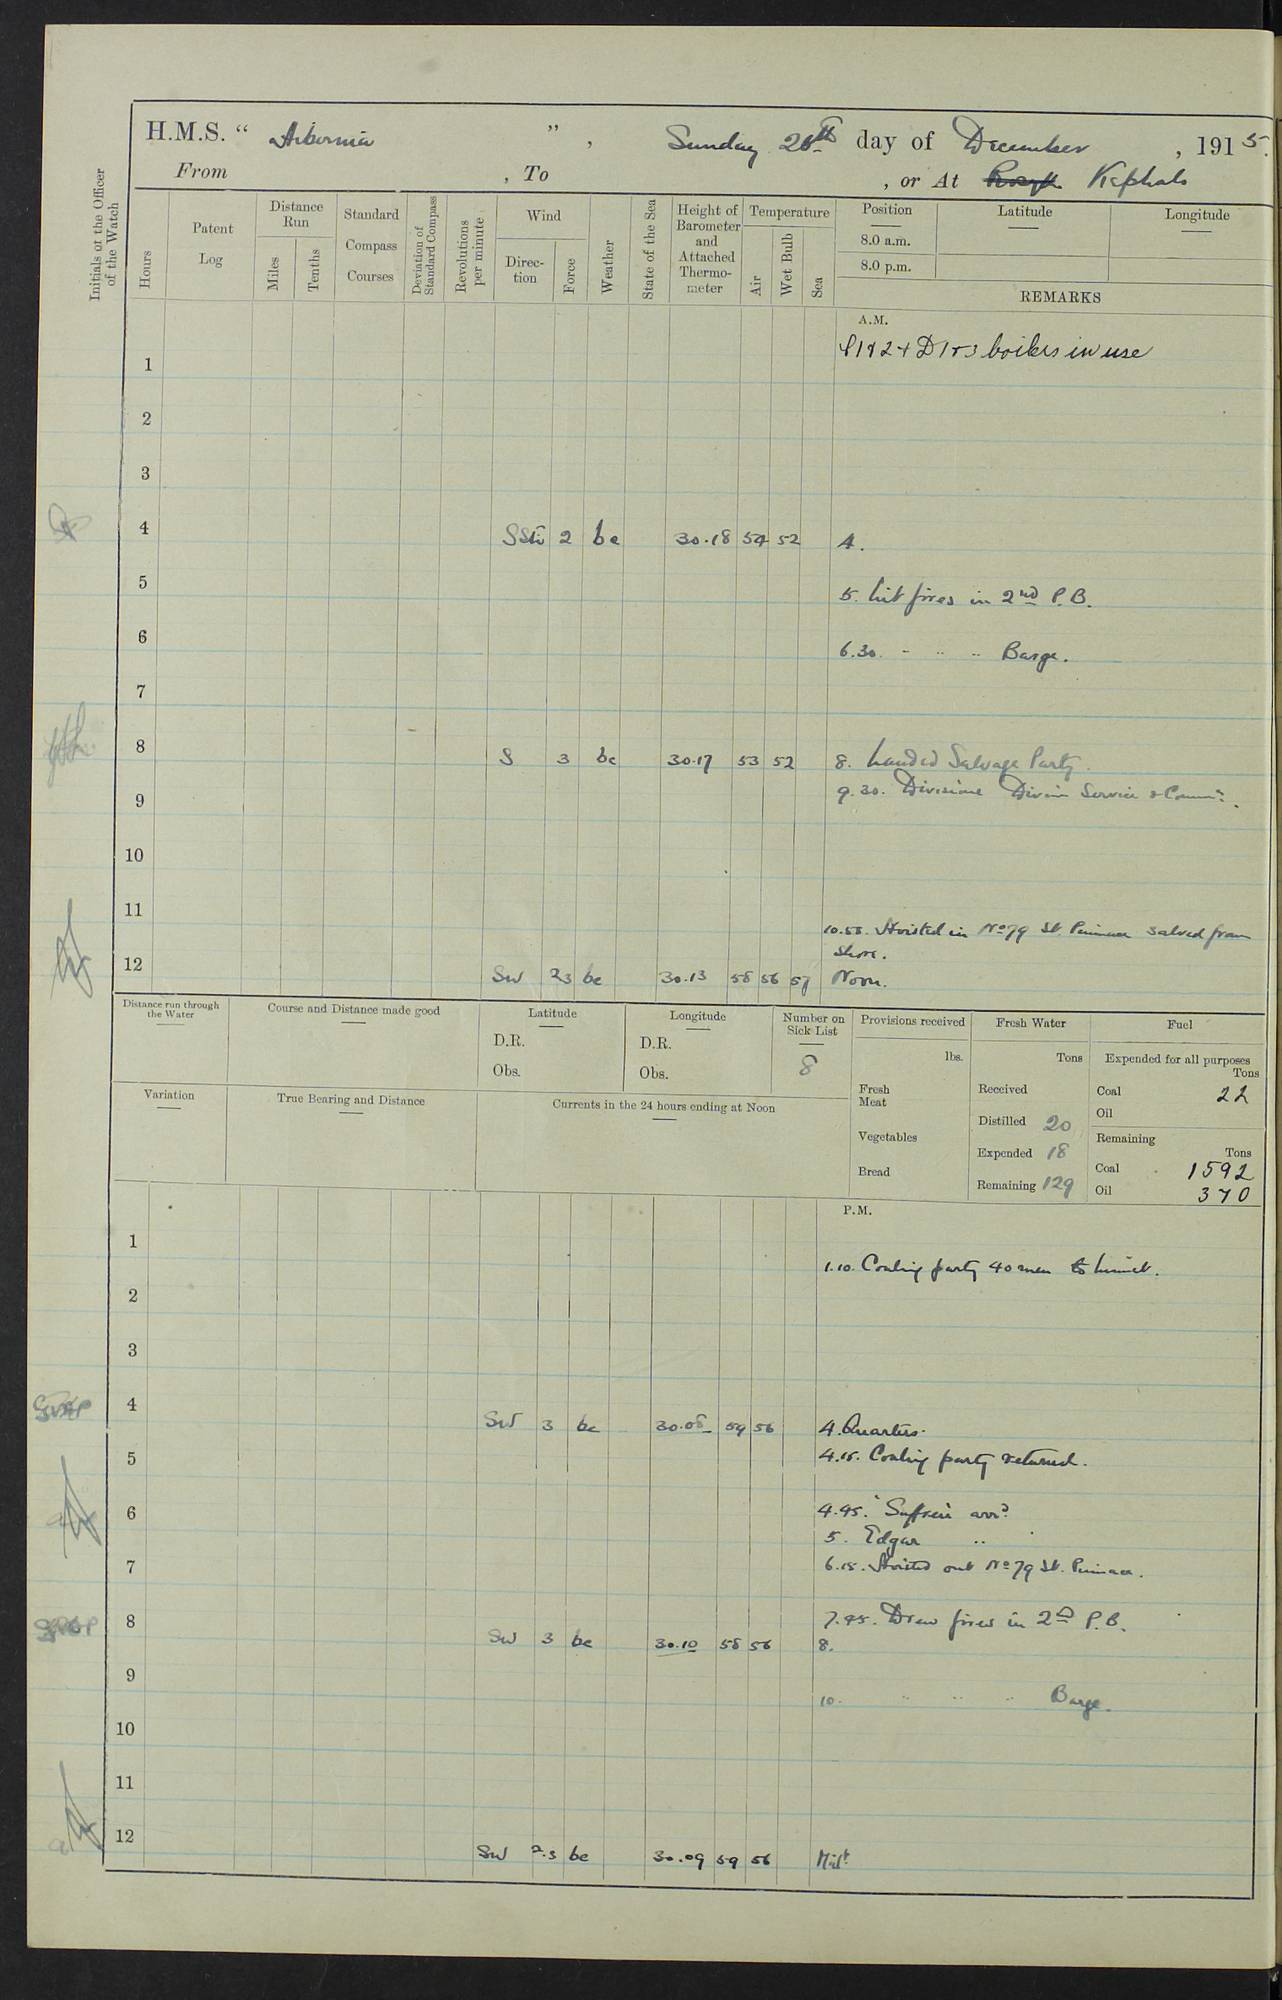 H.M.S. " Hibernia ", Sunday 26th day of December, 1915.
From , To , or At Kephalo
Initials of the Officer of the Watch
Hours
Patent Log
Distance Run
Miles
Tenths
Standard Compass Courses
Deviation of Standard Compass
Revolutions per minute
Wind
Direc-tion
Force
Weather
State of the Sea
Height of Barometer and Attached Thermo-meter
Temperature
Air
Wet Bulb
Sea
Position
Latitude
Longitude
8.0 a.m.
8.0 p.m.
REMARKS
A.M.
1 boilers in use
2
3
4 SSW 2 bc 30.18 54 52 4.
5 5. Lit fires in 2nd P.B.
6 6.30. " " " Barge.
7
8 S 3 bc 30.17 53 52 8. Landed Salvage Party.
9 9.30. Divisions Divine Service & Commn.
10
11 10.55. Hoisted in No 79 St. Pinnace salved from
shore.
12 SW 23 bc 30.13 58 56 57 Noon.
Distance run through the Water
Course and Distance made good
Latitude
D.R.
Obs.
Longitude
D.R.
Obs.
Number on Sick List
8
Provisions received
lbs.
Fresh Meat
Vegetables
Bread
Fresh Water
Tons
Received
Distilled 20
Expended 18
Remaining 129
Fuel
Expended for all purposes
Tons
Coal 22
Oil
Remaining
Tons
Coal 1592
Oil 370
Variation
True Bearing and Distance
Currents in the 24 hours ending at Noon
P.M.
1 1.10. Coaling party 40 men to
2
3
4 SW 3 bc 30.08 59 56 4. Quarters.
5 4.15. Coaling party returned.
6 4.45. "Suffren" arrd
5. Edgar "
7 6.15. Hoisted out No 79 St. Pinnace.
8 7.45. Drew fires in 2nd P.B.
SW 3 bc 30.10 58 56 8.
9
10. " " " Barge.
10
11
12 SW 2.3 bc 30.09 59 56 Midt